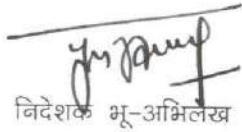 निदेशक भू-अभिलेख